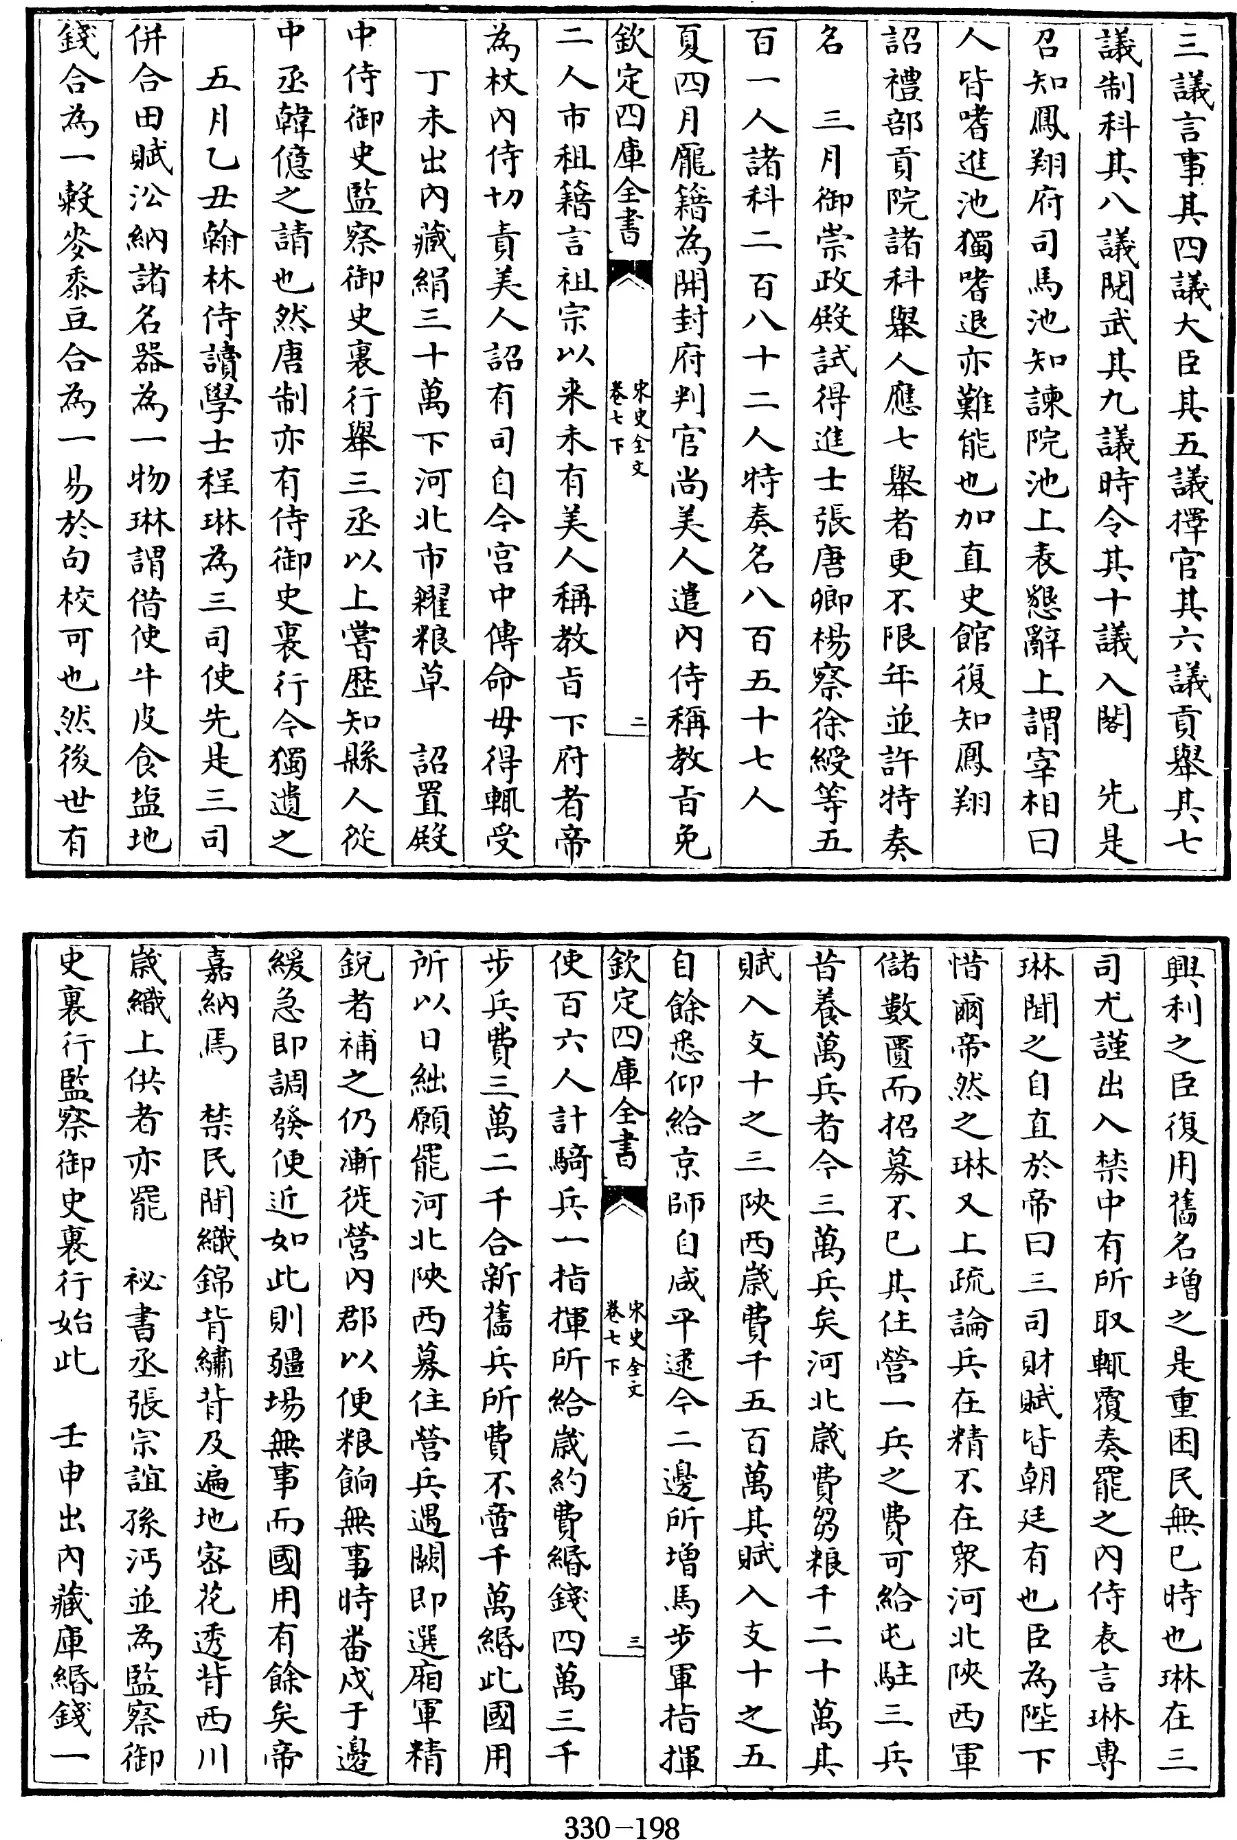 三議言事其四議大臣其五議擇官其六議貢舉其七
議制科其八議閱武其九議時令其十議入閣　先是
召知鳳翔府司馬池知諫院池上表懇辭上謂宰相曰
人皆嗜進池獨嗜退亦難能也加直史館復知鳳翔
詔禮部貢院諸科舉人應七舉者更不限年並許特奏
名　三月御崇政殿試得進士張唐卿楊察徐綬等五
百一人諸科二百八十二人特奏名八百五十七人
夏四月龐籍為開封府判官尚美人遣內侍稱教旨免
欽定四庫全書
宋史全文
卷七下
二
二人市租籍言祖宗以来未有美人稱教旨下府者帝
為杖內侍切責美人詔有司自今宮中傳命毋得輒受
丁未出內藏絹三十萬下河北市糴粮草　詔置殿
中侍御史監察御史裏行舉三丞以上嘗歷知縣人從
中丞韓億之請也然唐制亦有侍御史裏行今獨遺之
五月乙丑翰林侍讀學士程琳為三司使先是三司
併合田賦㳂納諸名器為一物琳謂借使牛皮食塩地
錢合為一穀麥黍豆合為一易於句校可也然後世有
興利之臣復用舊名增之是重困民無已時也琳在三
司尤謹出入禁中有所取輒覆奏罷之內侍表言琳專
琳聞之自直於帝曰三司財賦皆朝廷有也臣為陛下
惜爾帝然之琳又上疏論兵在精不在衆河北陝西軍
儲數匱而招募不已其住營一兵之費可給屯駐三兵
昔養萬兵者今三萬兵矣河北歲費芻粮千二十萬其
賦入支十之三陝西歲費千五百萬其賦入支十之五
自餘悉仰給京師自咸平逮今二邊所增馬步軍指揮
欽定四庫全書
宋史全文
卷七下
三
使百六人計騎兵一指揮所給歲約費緡錢四萬三千
步兵費三萬二千合新舊兵所費不啻千萬緡此國用
所以日絀願罷河北陝西募住營兵遇闕即選廂軍精
銳者補之仍漸徙營內郡以便粮餉無事時畨戍于邊
緩急即調發便近如此則疆場無事而國用有餘矣帝
嘉納焉　禁民間織錦背繡背及遍地密花透背西川
歲織上供者亦罷　祕書丞張宗誼孫沔並為監察御
史裏行監察御史裏行始此　壬申出內藏庫緡錢一
330-198